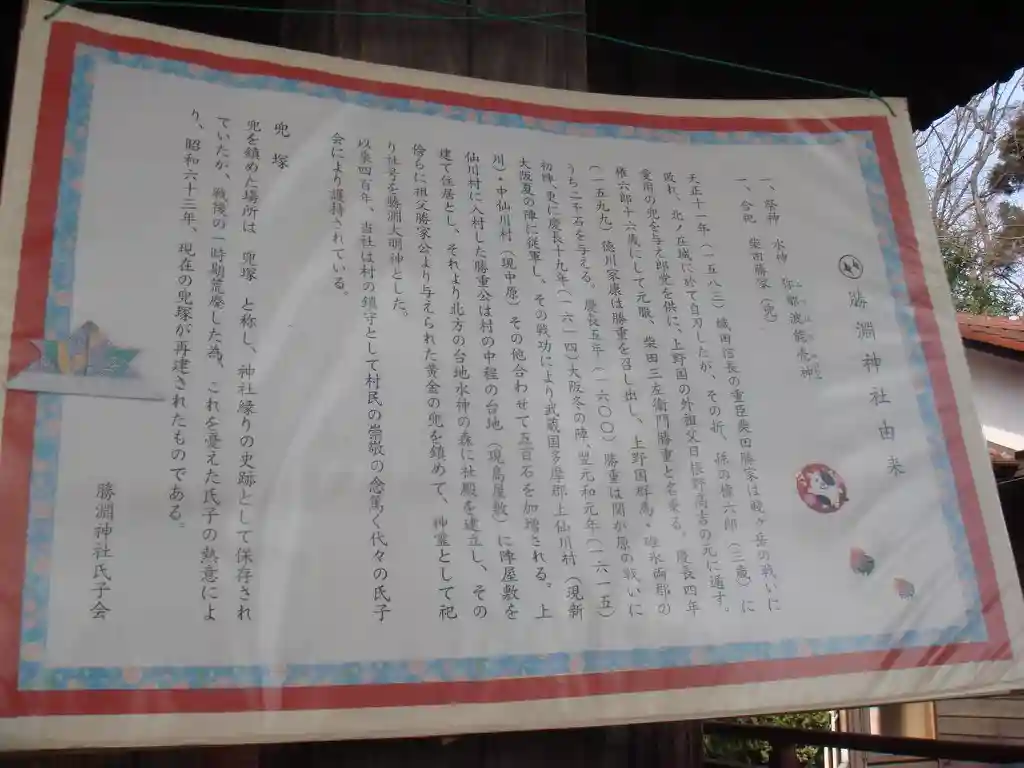 勝淵神社由来
一、祭神 水神 弥都波能売神
一、合祀 柴田勝家(兜)
天正十一年(一五八三)織田信長の重臣柴田勝家は賤ヶ岳の戦いに
敗れ、北ノ庄城に於て自刃したが、その折、孫の権六郎(三歳)に
愛用の兜を与え郎党を供に、上野国の外祖父日根野高吉の元に逃す。
権六郎十六歳にして元服、柴田三左衛門勝重と名乗る。慶長四年
(一五九九)徳川家康は勝重を召し出し、上野国群馬・碓氷両郡の
うち二千石を与える。慶長五年(一六〇〇)勝重は関が原の戦いに
初陣、更に慶長十九年(一六一四)大阪冬の陣、翌元和元年(一六一五)
大阪夏の陣に従軍し、その戦功により武蔵国多摩郡上仙川村(現新
川)・中仙川村(現中原)その他合わせて五百石を加増される。上
仙川村に入村した勝重公は村の中程の台地(現島屋敷)に陣屋敷を
建て住居とし、それより北方の台地水神の森に社殿を建立し、その
傍らに祖父勝家公より与えられた黄金の兜を鎮めて、神霊として祀
り社号を勝淵大明神とした。
以来四百年、当社は村の鎮守として村民の崇敬の念篤く代々の氏子
会により護持されている。
兜塚
兜を鎮めた場所は 兜塚 と称し、神社縁りの史跡として保存され
ていたが、戦後の一時期荒廃した為、これを憂えた氏子の熱意によ
り、昭和六十三年、現在の兜塚が再建されたものである。
勝淵神社氏子会